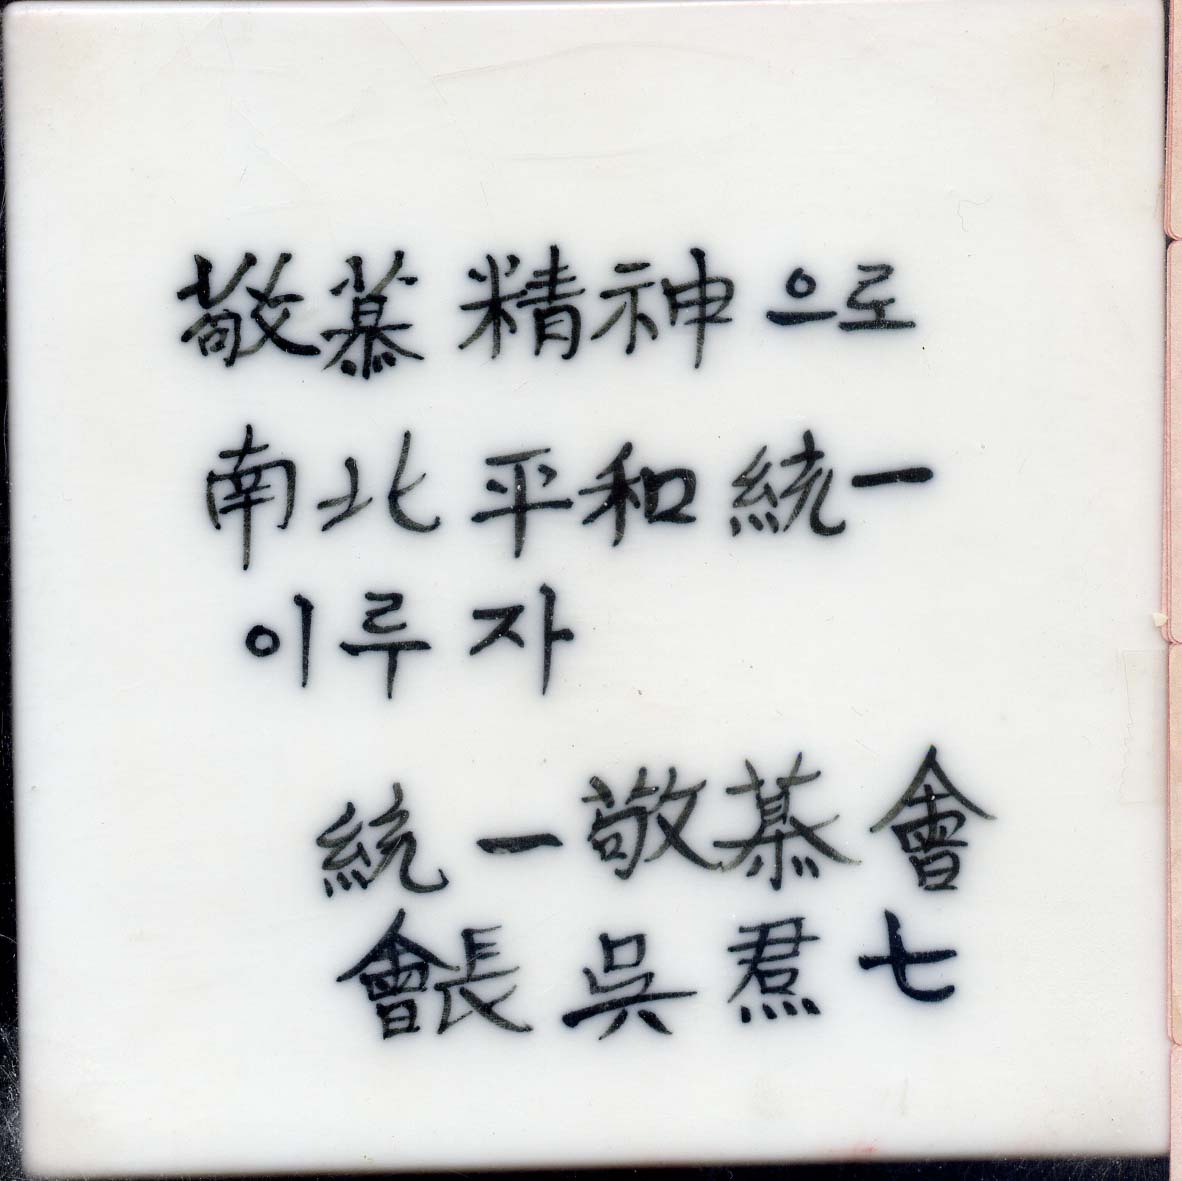 敬慕 精神으로
南北 平和 統一
이루자
統一敬慕會
會長 吳焄七